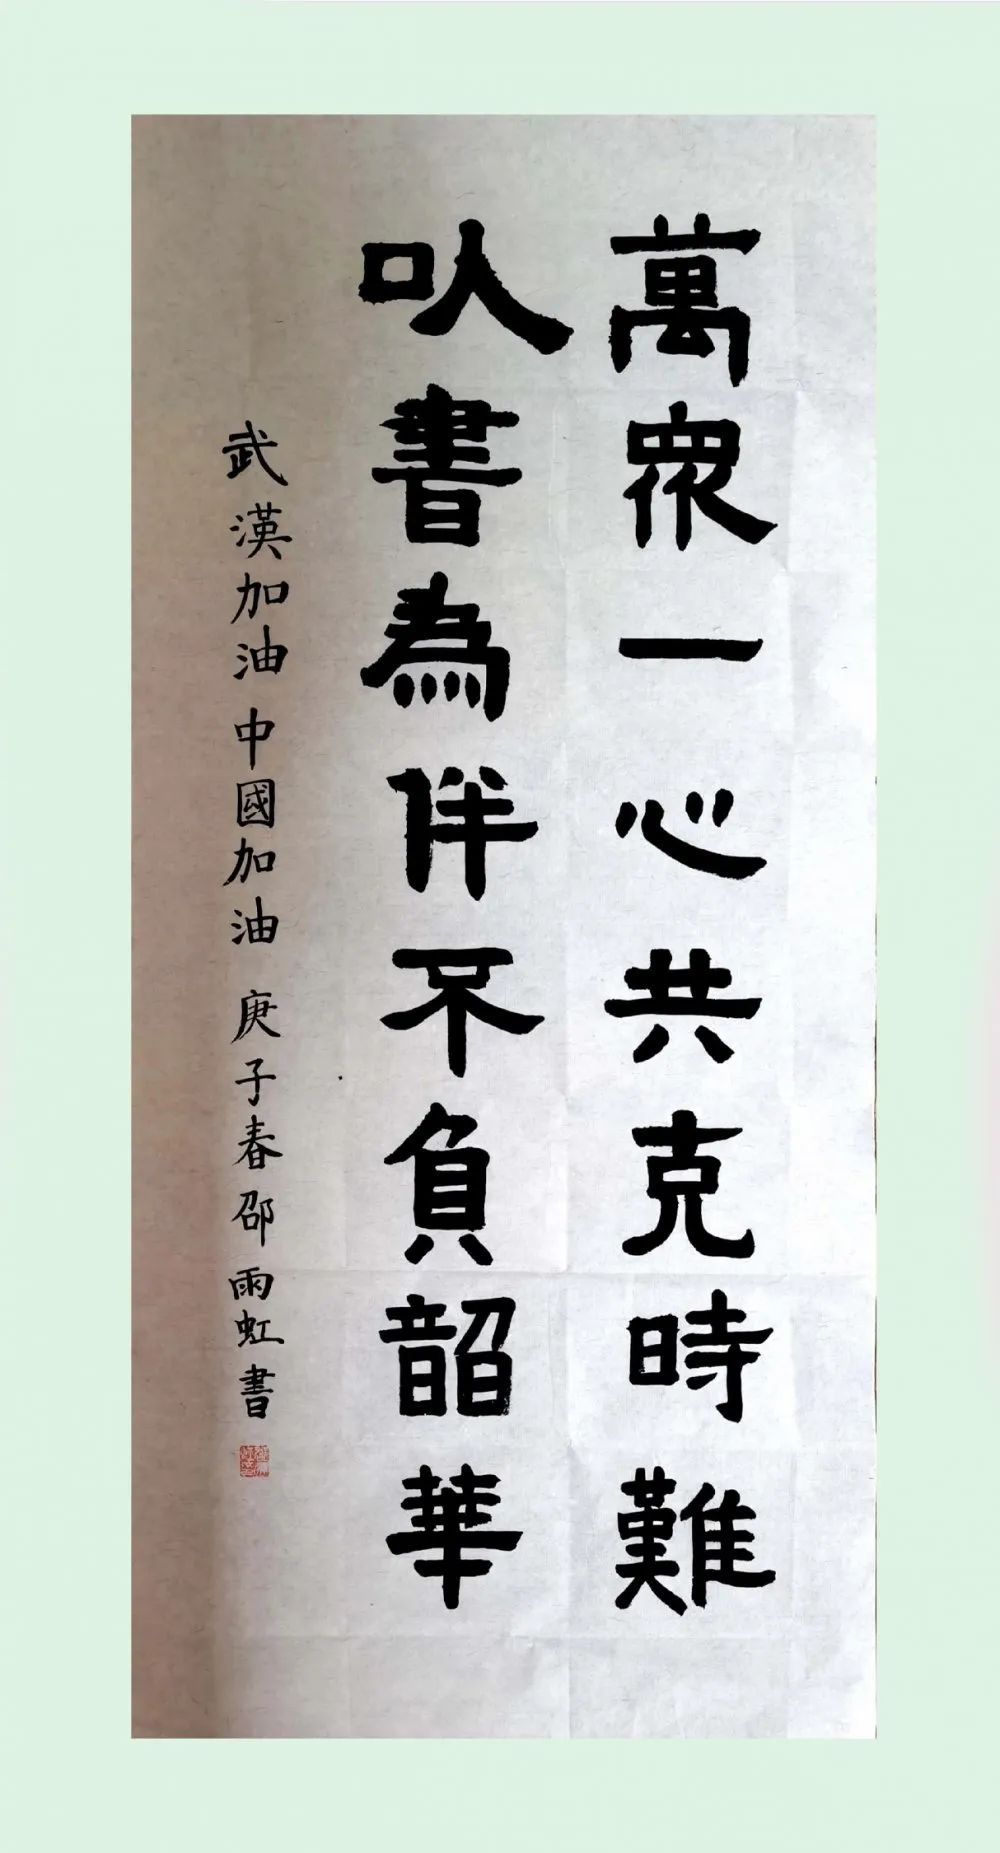 萬眾一心共克時難
以書為伴不負韶華
武漢加油中國加油 庚子春邵雨虹書